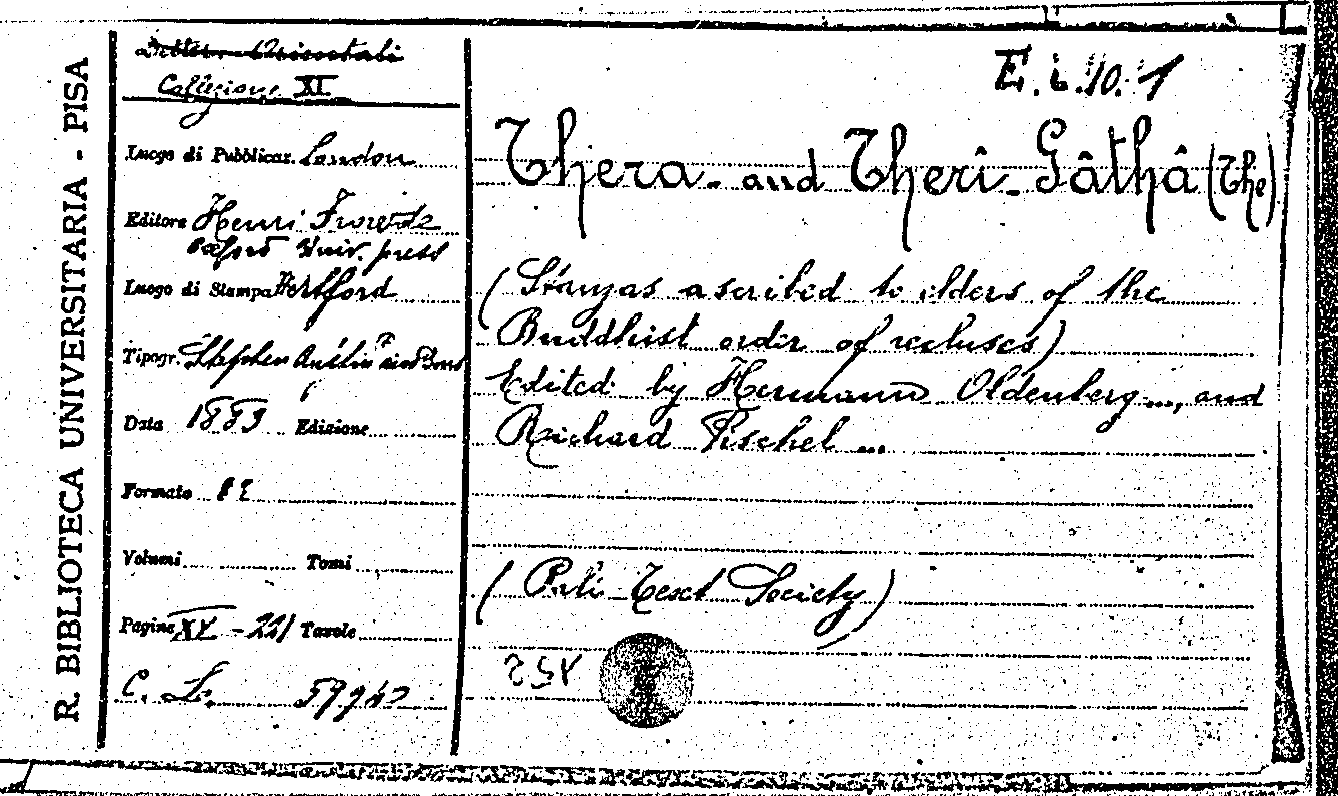 R. BIBLIOTECA UNIVERSITARIA - PISA
Orientali
Collezione XI
Luogo di Pubblicaz. London
Editore Henri Frowde
Oxford Univ. press
Luogo di Stampa Hertford
Tipogr. Stephen Austin and Sons
Data 1883 Edizione
Formato 8º
Volumi Tomi
Pagine XV - 221 Tavole
C. L.
E. i. 10. 1
Thera- and Therî- Gâthâ (The)
(Stanzas ascribed to elders of the
Buddhist order of recluses)
Edited by Hermann Oldenberg ..., and
Richard Pischel ...
(Pali Text Society)